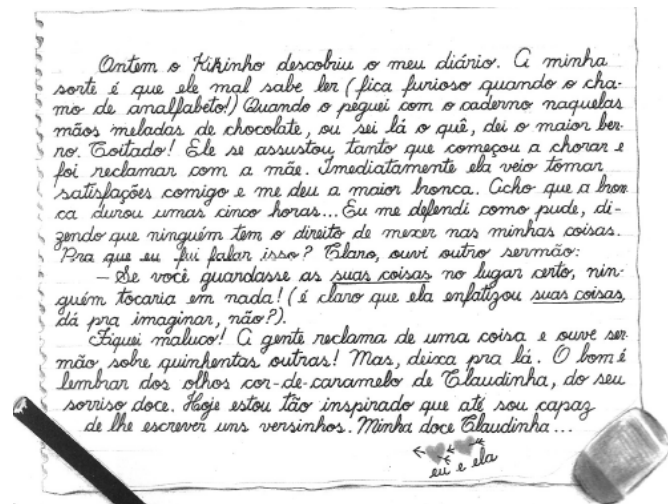 Ontem o Kikinho descobriu o meu diário. A minha
sorte é que ele mal sabe ler (fica furioso quando o cha-
mo de analfabeto!) Quando o peguei com o caderno naquelas
mãos meladas de chocolate, ou sei lá o quê, dei o maior ber-
ro. Coitado! Ele se assustou tanto que começou a chorar e
foi reclamar com a mãe. Imediatamente ela veio tomar
satisfações comigo e me deu a maior bronca. Acho que a bron
ca durou umas cinco horas... Eu me defendi como pude, di-
zendo que ninguém tem o direito de mexer nas minhas coisas.
Pra que eu fui falar isso? Claro, ouvi outro sermão:
– Se você guardasse as suas coisas no lugar certo, nin-
guém tocaria em nada! (é claro que ela enfatizou suas coisas,
dá pra imaginar, não?).
Fiquei maluco! A gente reclama de uma coisa e ouve ser-
mão sobre quinhentas outras! Mas, deixa pra lá. O bom é
lembrar dos olhos cor-de-caramelo de Claudinha, do seu
sorriso doce. Hoje estou tão inspirado que até sou capaz
de lhe escrever uns versinhos. Minha doce Claudinha...
eu e ela